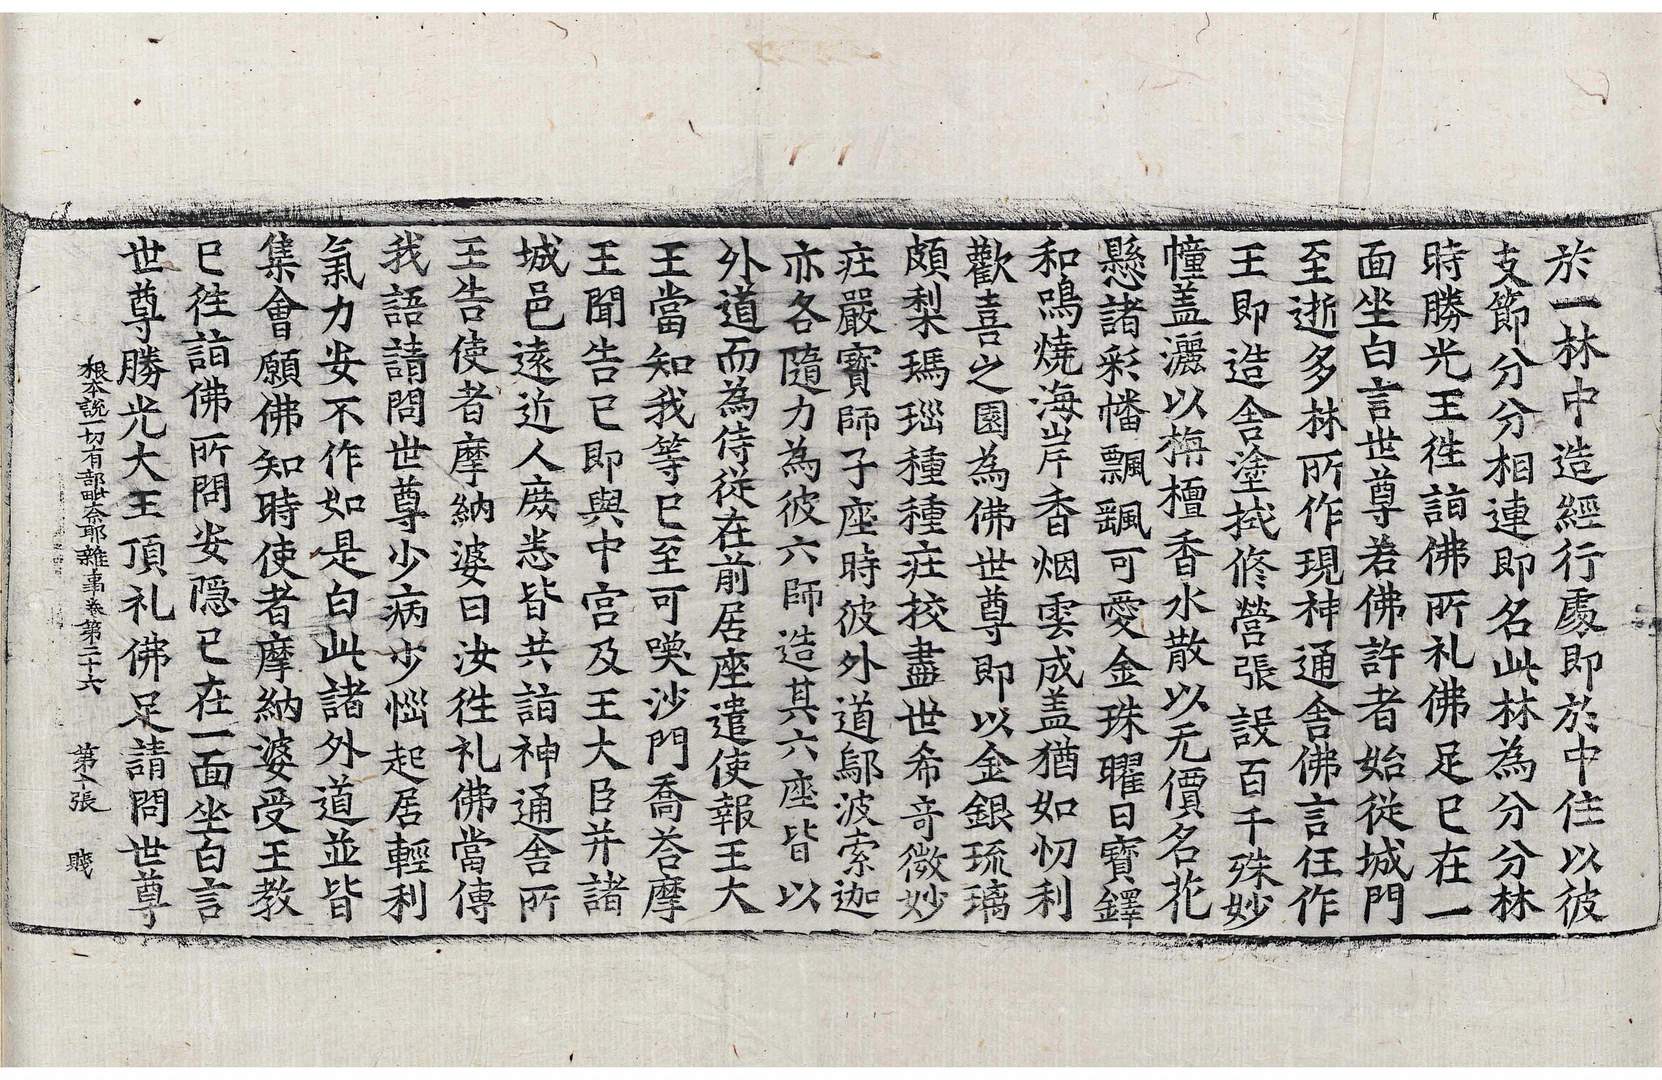 於一林中造經行處即於中住以彼
支節分分相連即名此林為分分林
時勝光王徃詣佛所礼佛足已在一
面坐白言世尊若佛許者始從城門
至逝多林所作現神通舍佛言任作
王即造舍塗拭修營張設百千殊妙
幢盖灑以栴檀香水散以无價名花
懸諸彩幡飄颻可愛金珠曜日寶鐸
和鳴燒海岸香烟雲成盖猶如忉利
歡喜之園為佛世尊即以金銀琉璃
頗梨瑪瑙種種莊校盡世希竒微妙
莊嚴寶師子座時彼外道鄔波索迦
亦各隨力為彼六師造其六座皆以
外道而為侍從在前居座遣使報王大
王當知我等已至可喚沙門喬荅摩
王聞告已即與中宫及王大臣并諸
城邑遠近人庶悉皆共詣神通舍所
王告使者摩納婆曰汝徃礼佛當傳
我語請問世尊少病少惱起居輕利
氣力安不作如是白此諸外道並皆
集會願佛知時使者摩納婆受王教
已徃詣佛所問安隠已在一面坐白言
世尊勝光大王頂礼佛足請問世尊
根本說一切有部毗奈耶雜事卷第二十六 第十張 賤